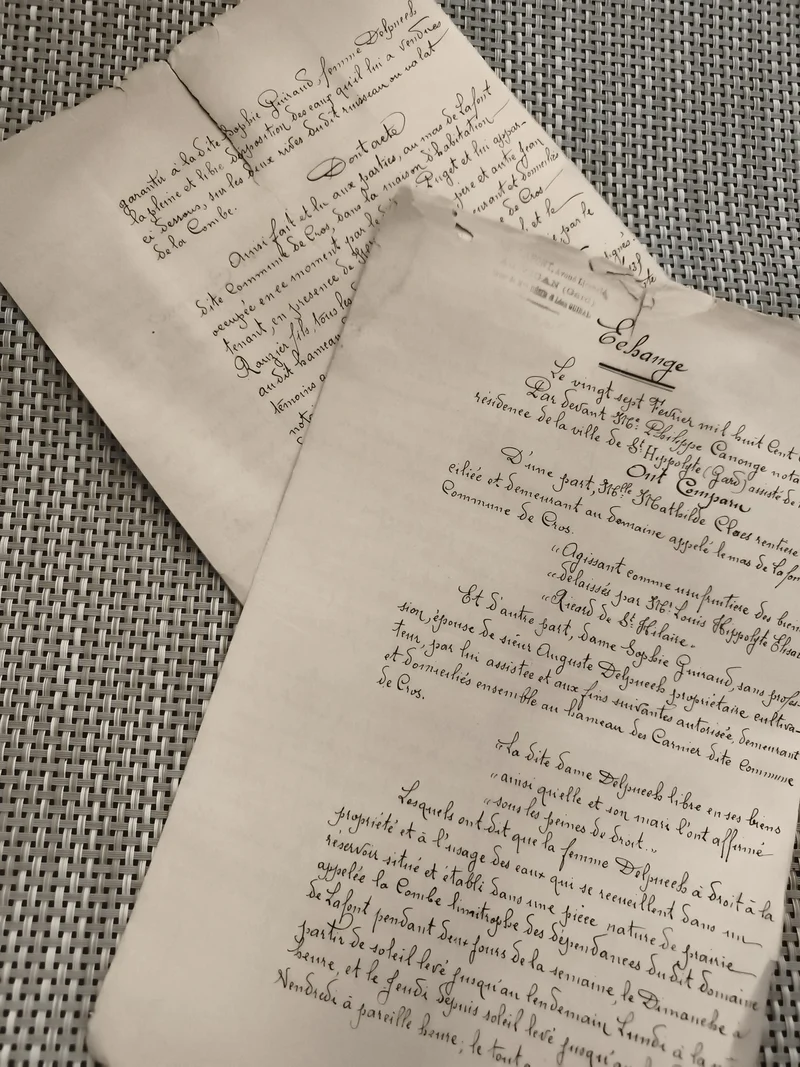 garantir à la dite Sophie Guiraud, femme Delpuech
la pleine et libre disposition des eaux qu'il lui a vendues
ci dessous, sur les deux rives du dit ruisseau ou valat
de la Combe.
Dont acte
Ainsi fait et lu aux parties, au mas de Lafont
dite Commune de Cros, dans la maison d'habitation
occupée en ce moment par le Puget et lui appar-
tenant, en présence de père et autre Jean
Rauzier fils tous les demeurant et domiciliés
au dit hameau de Cros
témoins et le
not par le
signés
Echange
Le vingt sept Février mil huit cent
Par devant Me Philippe Canonge nota
résidence de la ville de St Hippolyte (Gard) assisté de
Ont Comparu
D'une part, Melle Mathilde Claes rentière
ciliée et demeurant au domaine appelé le mas de Lafon
Commune de Cros.
"Agissant comme usufruitière des bien
"délaissés par Mr Louis Hippolyte
"Ricard de St Hilaire.
Et d'autre part, dame Sophie Guiraud, sans profes-
sion, épouse de sieur Auguste Delpuech propriétaire cultiva-
teur, par lui assistée et aux fins suivantes autorisée, demeurant
et domiciliés ensemble au hameau des Carnier dite Commune
de Cros.
"La dite dame Delpuech libre en ses biens
"ainsi qu'elle et son mari l'ont affirmé
"sous les peines de droit."
Lesquels ont dit que la femme Delpuech à droit à la
propriété et à l'usage des eaux qui se recueillent dans un
réservoir situé et établi dans une pièce nature de prairie
appelée la Combe limitrophe des dépendances du dit domaine
de Lafont pendant deux jours de la semaine, le Dimanche à
partir de soleil levé jusqu'au lendemain Lundi à la
heure, et le Jeudi depuis soleil levé jusqu'au
Vendredi à pareille heure; le tout